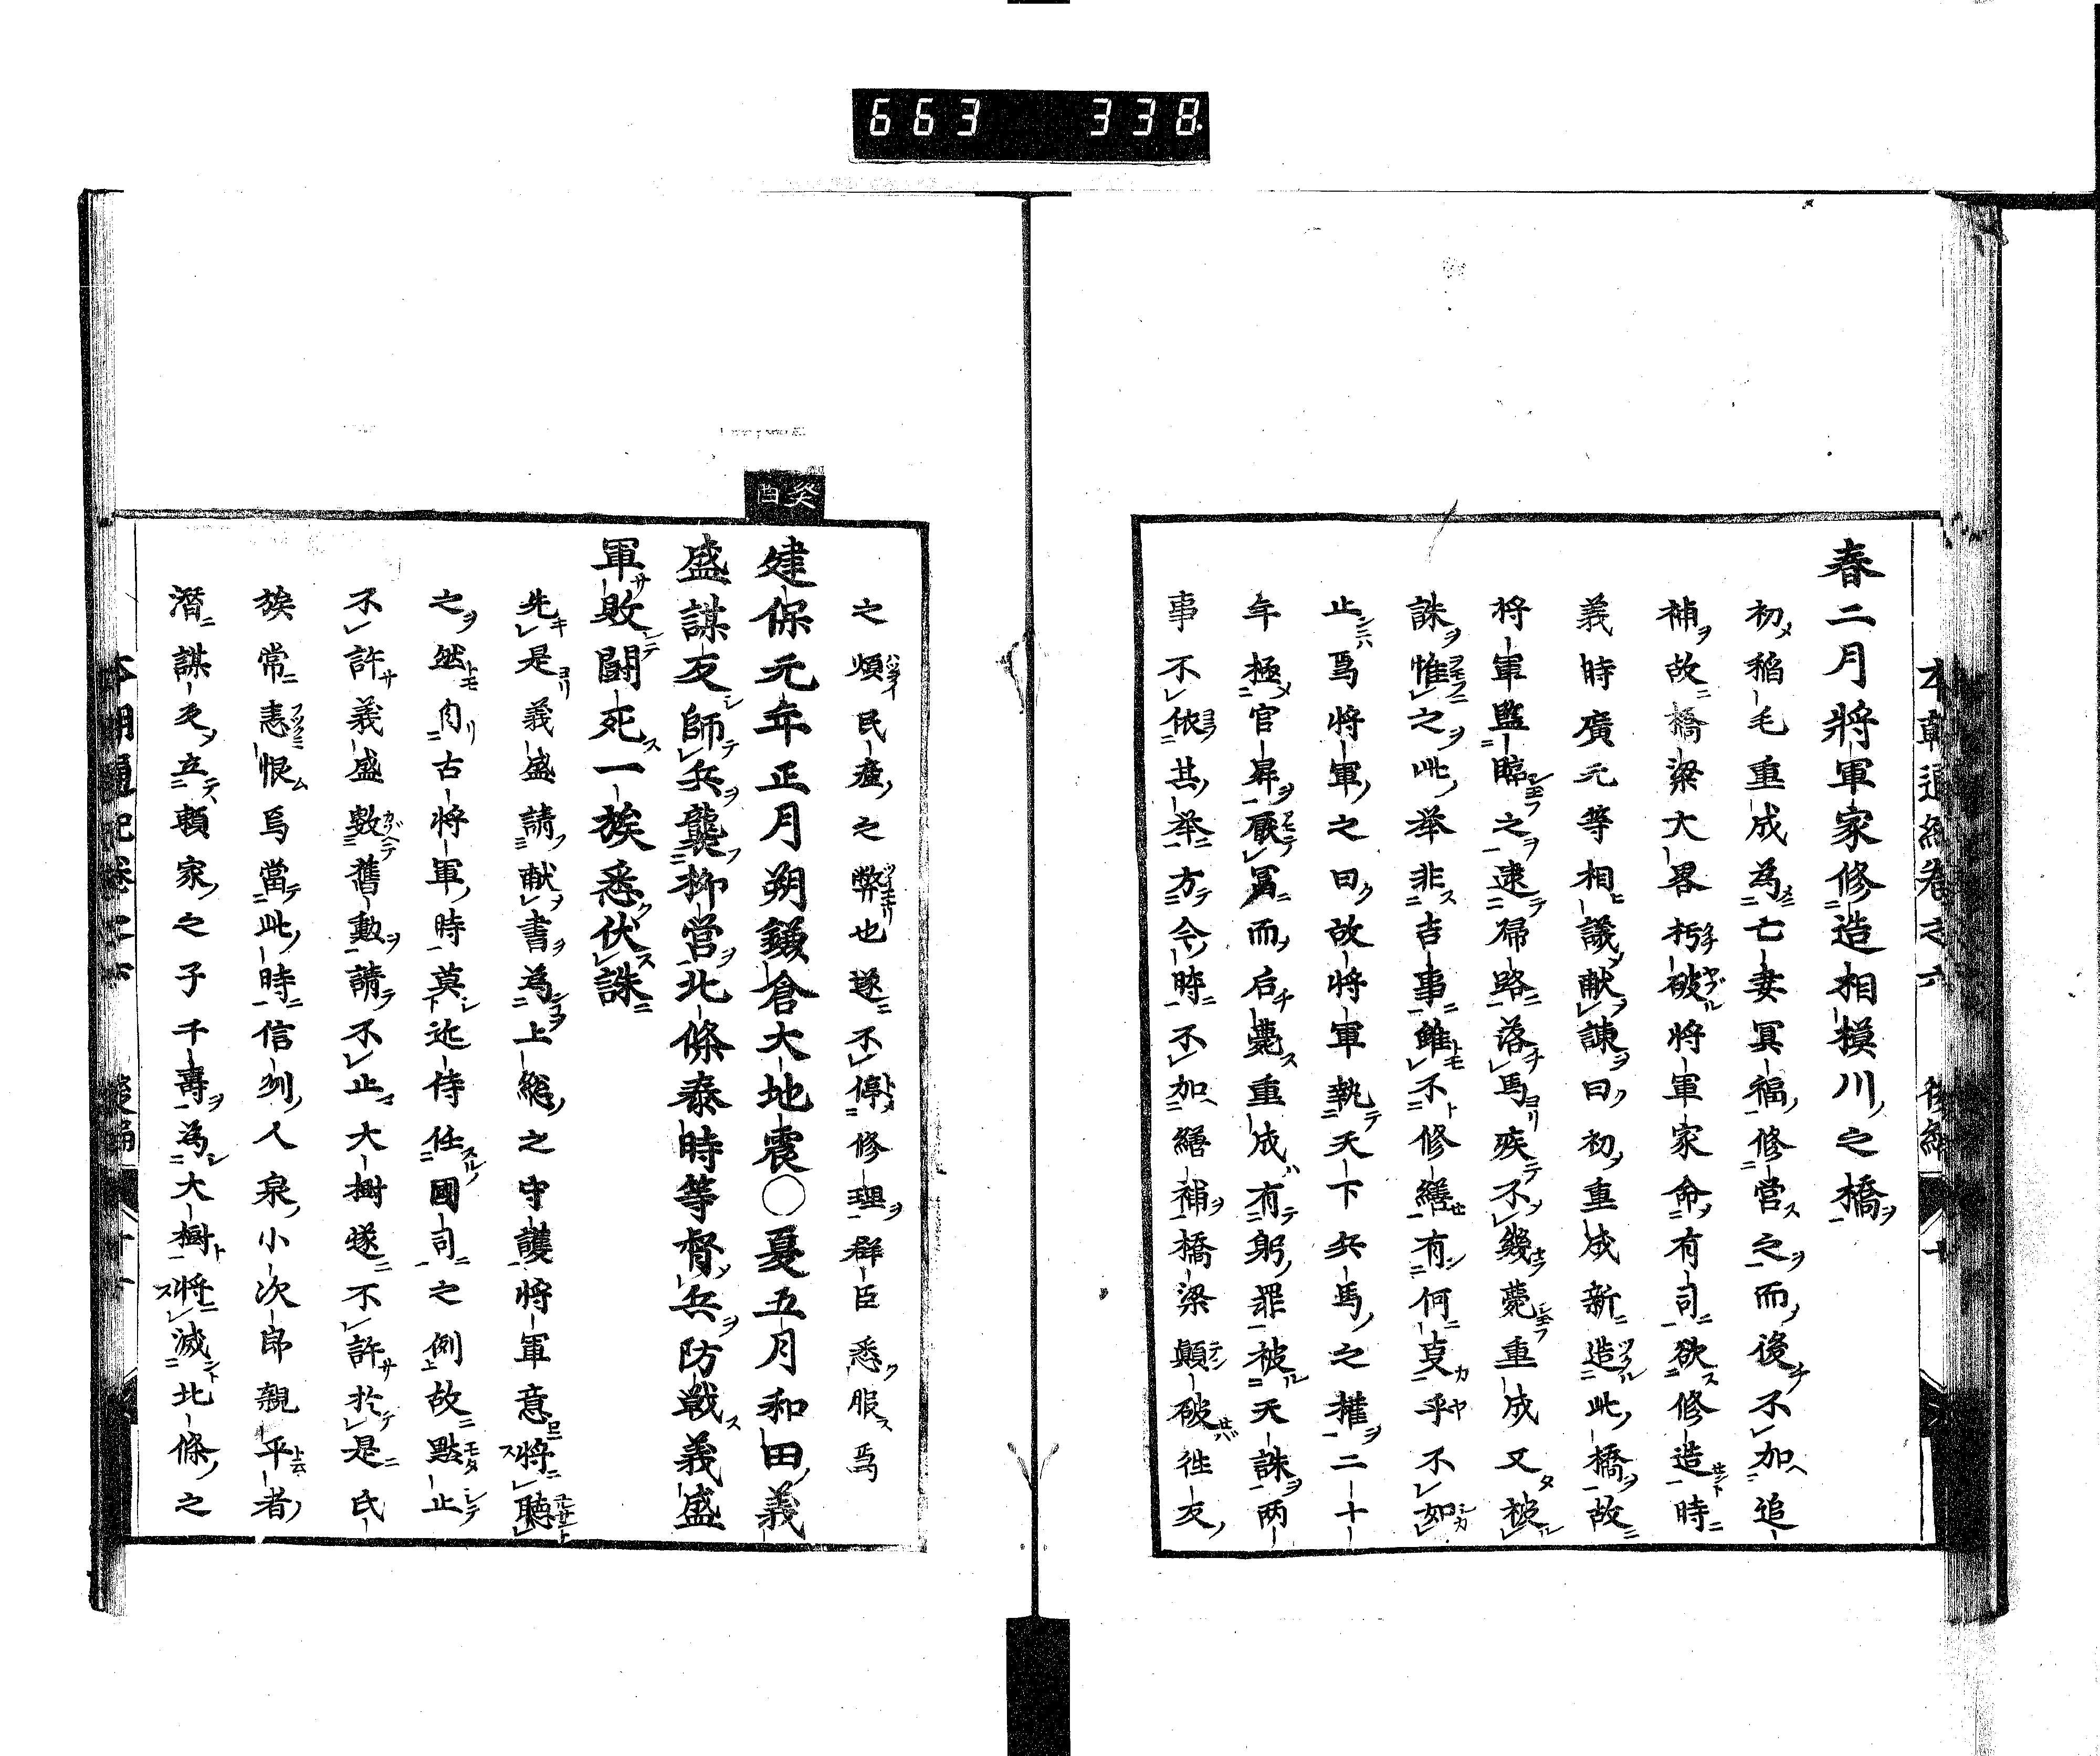 663 338
春二月將軍家修造相模川之橋
初稲毛重成為亡妻冥福修営之而後不加追
補故橋梁大畧朽破将軍家命有司欲修造時
義時廣元等相議献諌曰初重成新造此橋故
将軍監臨之逮帰路落馬疾不幾薨重成又被
誅惟之此挙非吉事雖不修繕有何㕝乎不如
止焉将軍之曰故将軍執天下兵馬之權二十
年極官昇厭冨而后薨重成有躬罪被天誅两
事不依其挙方今時不加繕補橋梁顛破徃反
之煩民産之弊也遂不停修理群臣悉服焉
癸酉
建保元年正月朔鎌倉大地震○夏五月和田義
盛謀反師兵襲柳営北條泰時等督兵防戦義盛
軍敗闘死一族悉伏誅
先是義盛請献書為上総之守護将軍意将聴
之然自古将軍時莫近侍任國司之例故黙止
不許義盛數舊勲請不止大樹遂不許於是氏
族常恚恨焉當此時信州人泉小次郎親平者
潜謀反立頼家之子千壽為大樹将滅北條之